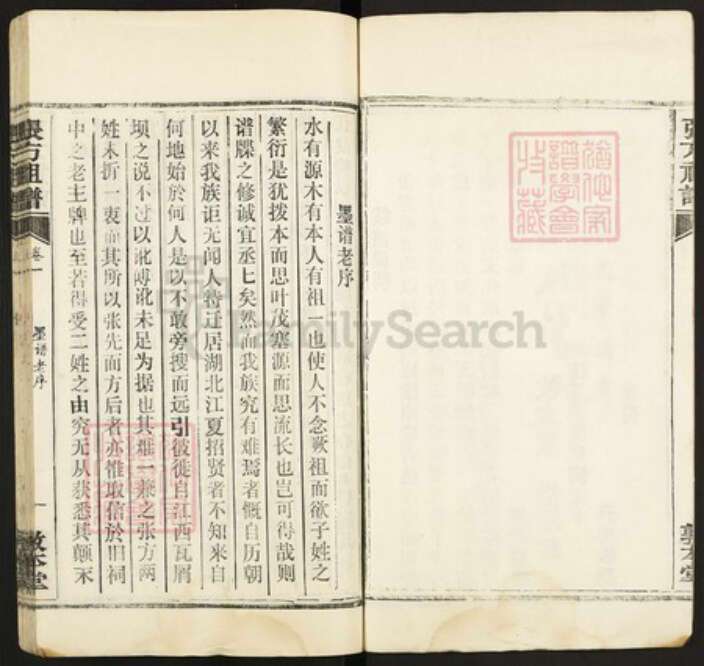 墨谱老序
水有源木有本人有祖一也使人不念厥祖而欲子姓之
繁衍是犹拨本而思叶茂塞源而思流长也岂可得哉则
谱牒之修诚宜丞七矣然而我族究有难焉者慨自历朝
以来我族讵无闻人特迁居湖北江夏招贤者不知来自
何地始於何人是以不敢旁搜而远引彼徙自江西瓦屑
坝之说不过以讹尃讹未足为据也其难一兼之张方两
姓未折一衷而其所以张先而方后者亦惟取信於旧祠
中之老主牌也至若得受二姓之由究无从获悉其颠末
张方祖谱
卷一
墨谱老序
一
敦本堂
FamilySearch